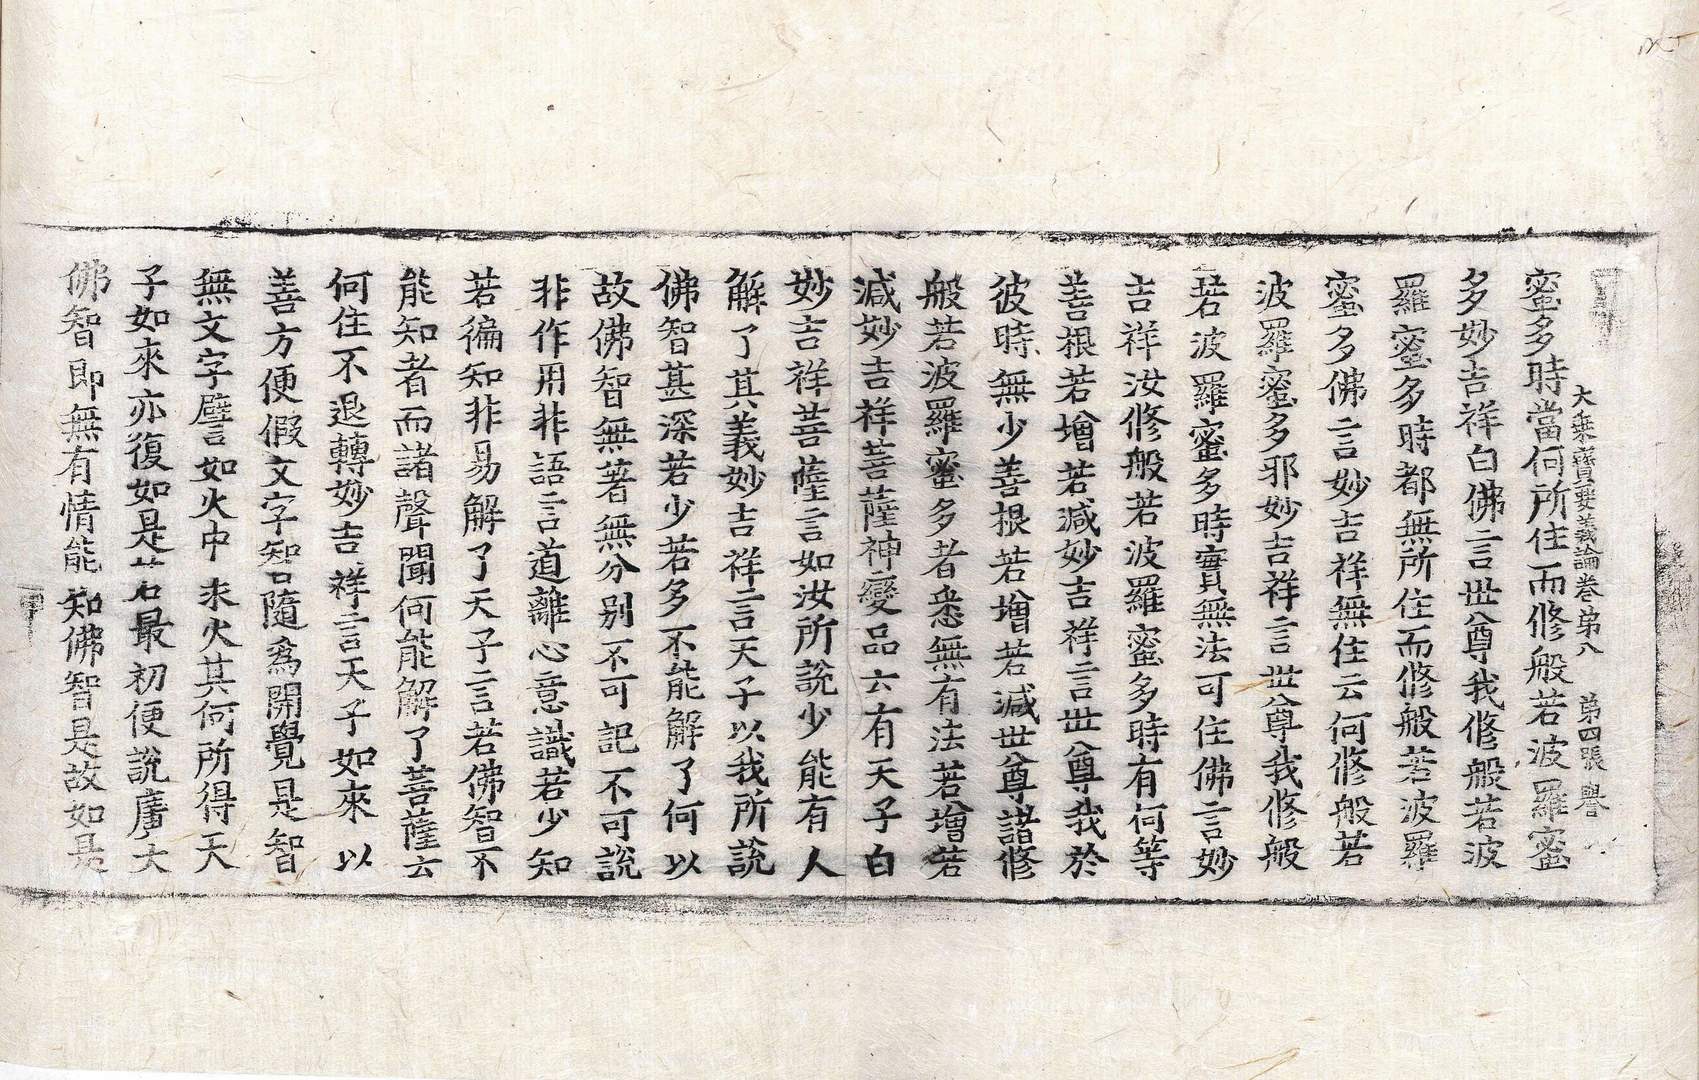 大乘寶要義論卷第八 第四張 譽
蜜多時當何所住而修般若波羅蜜
多妙吉祥白佛言世尊我修般若波
羅蜜多時都無所住而修般若波羅
蜜多佛言妙吉祥無住云何修般若
波羅蜜多邪妙吉祥言世尊我修般
若波羅蜜多時實無法可住佛言妙
吉祥汝修般若波羅蜜多時有何等
善根若增若減妙吉祥言世尊我於
彼時無少善根若增若減世尊諸修
般若波羅蜜多者悉無有法若增若
減妙吉祥菩薩神變品云有天子白
妙吉祥菩薩言如汝所說少能有人
解了其義妙吉祥言天子以我所說
佛智甚深若少若多不能解了何以
故佛智無著無分別不可記不可說
非作用非語言道離心意識若少知
若徧知非易解了天子言若佛智不
能知者而諸聲聞何能解了菩薩云
何住不退轉妙吉祥言天子如來以
善方便假文字知隨爲開覺是智
無文字譬如火中求火其何所得天
子如來亦復如是若最初便說廣大
佛智即無有情能知佛智是故如是